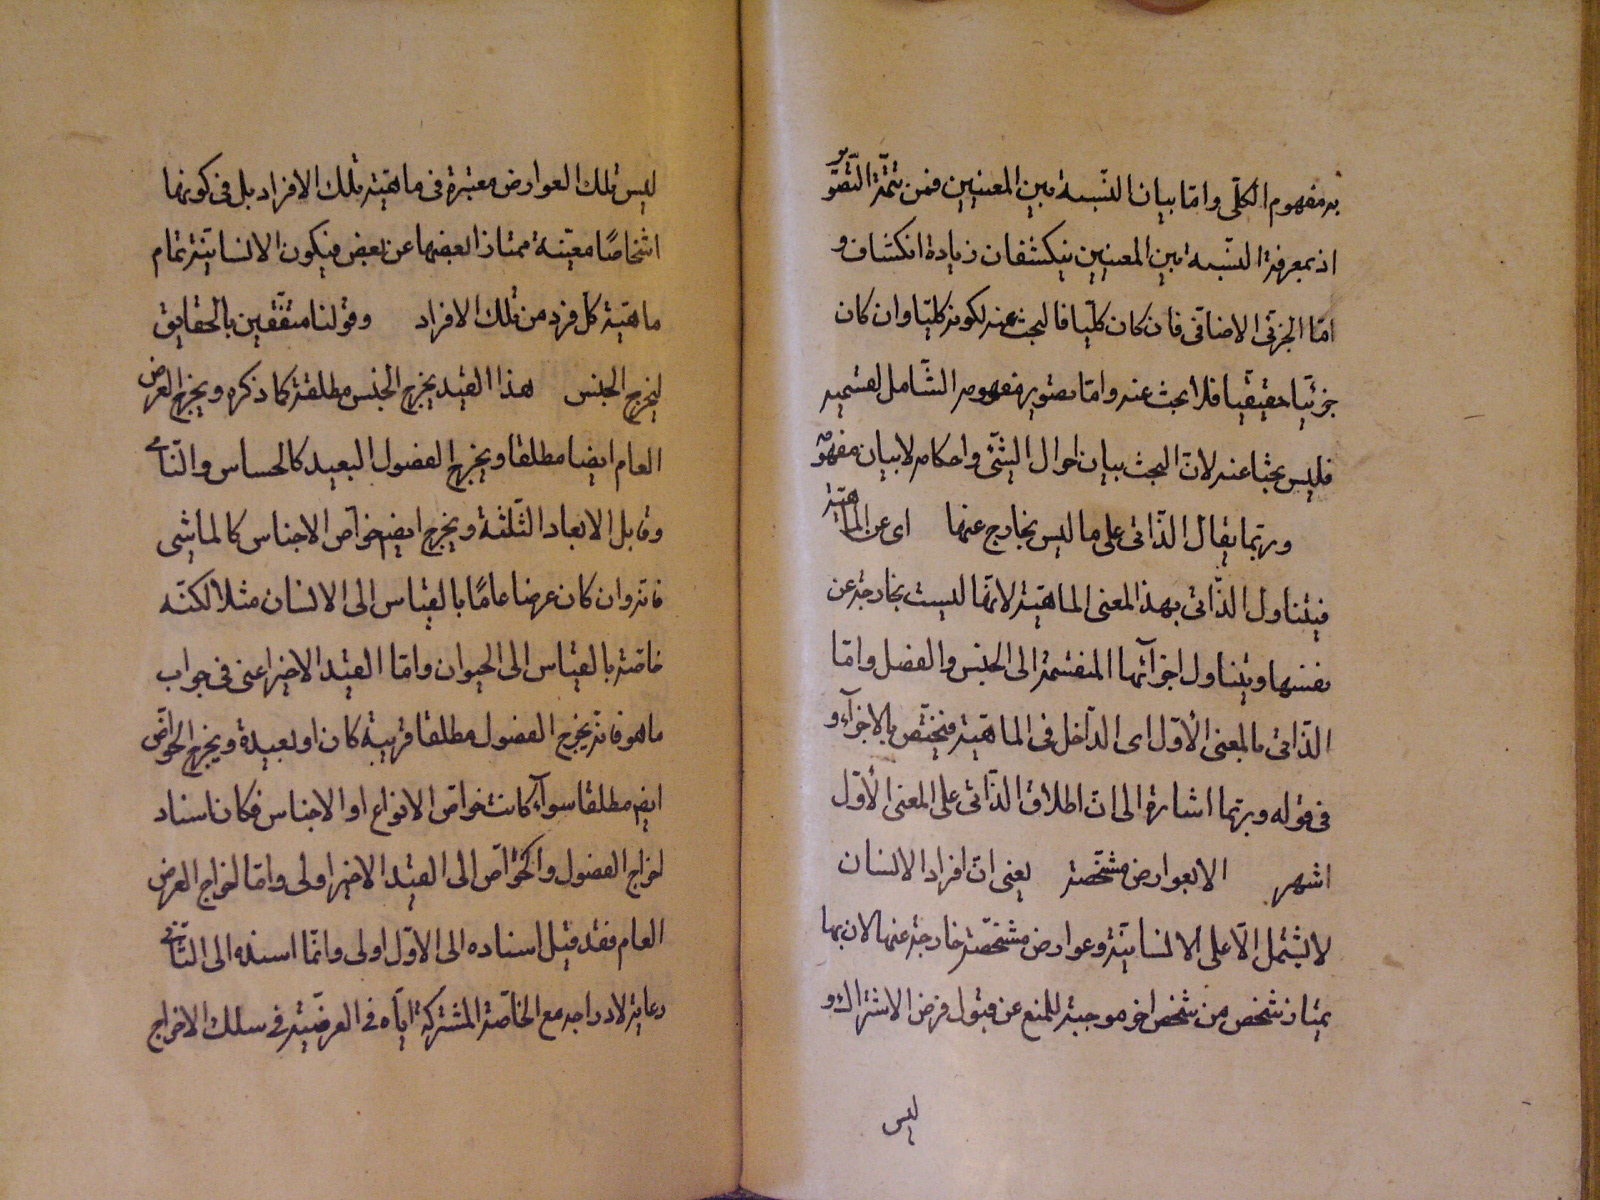 به مفهوم الكلّى وامّا بيان النّسبة بين المعنيين فمن تتمّة التّصوّر
اذ بمعرفة النّسبة بين المعنيين ينكشفان زيادة انكشاف و
امّا الجزئى الاضافى فان كان كليّا فالبحث عنه لكونه كليّا وان كان
جزئيّا حقيقيّا فلا بحث عنه وامّا تصوير مفهومه الشّامل لقسميه
فليس بحثا عنه لانّ البحث بيان احوال الشّئ واحكامه لا بيان مفهومه
وربّما يقال الذّاتى على ما ليس بخارج عنها اى عن الماهيّة
فيتناول الذّاتى بهذا المعنى الماهيّة لانّها ليست بخارجة عن
نفسها ويتناول اجزآئها المنقسمة الى الجنس والفصل وامّا
الذّاتى بالمعنى الأوّل اى الدّاخل فى الماهيّة فيختصّ بالاجزآء و
فى قوله وربّما اشارة الى انّ اطلاق الذّاتى على المعنى الأوّل
اشهر الا بعوارض مشخّصة يعنى انّ افراد الانسان
لا يشتمل الّا على الانسانيّة وعوارض مشخّصة خارجة عنها لان بها
يمتاز شخص من شخص اخر موجبة للمنع عن قبول فرض الاشتراك و
ليس
ليس تلك العوارض معتبرة فى ماهيّة تلك الافراد بل فى كونها
اشخاصًا معيّنة ممتازا بعضها عن بعض فيكون الانسانيّة تمام
ماهيّة كلّ فرد من تلك الافراد وقولنا متّفقين بالحقايق
ليخرج الجنس هذا القيد يخرج الجنس مطلقة كما ذكره ويخرج العرض
العام ايضا مطلقا ويخرج الفصول البعيد كالحساس والنّامى
وقابل الابعاد الثّلثة ويخرج ايضم خواصّ الاجناس كالماشى
فانّه وان كان عرضا عامًا بالقياس الى الانسان مثلا لكنّه
خاصّة بالقياس الى الحيوان وامّا القيد الاخير اعنى فى جواب
ما هو فانّه يخرج الفصول مطلقا قريبة كان او بعيدة ويخرج الخواصّ
ايضم مطلقا سوآء كانت خواصّ الانواع او الاجناس فكان اسناد
اخراج الفصول والخوّاصّ الى القيد الاخير اولى وامّا اخراج العرض
العام فقد قيل اسناده الى الاوّل اولى وانّما اسنده الى الثّانى
رعاية لادراجه مع الخاصّة المشتركة ايّاه فى العرضيّة فى سلك الاخراج